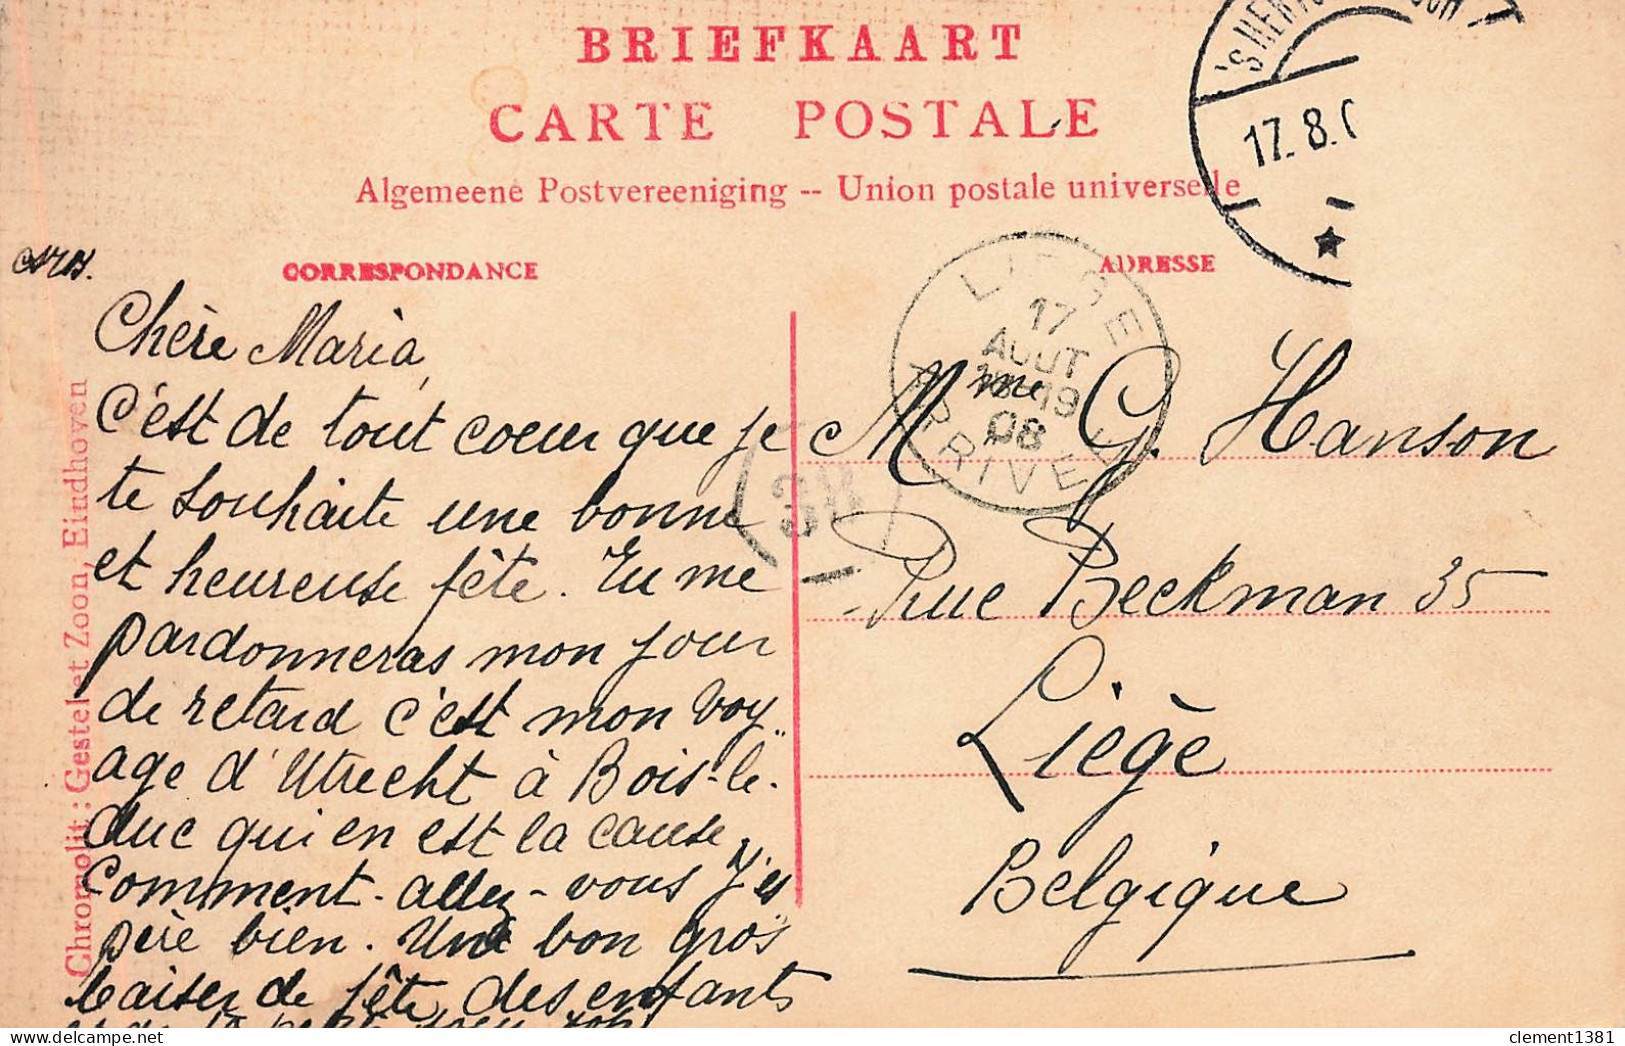 BRIEFKAART
CARTE POSTALE
Algemeene Postvereeniging -- Union postale universelle
CORRESPONDANCE
ADRESSE
17.8.0
LIEGE
17
AOUT
19
08
ARRIVEE
Chère Maria,
C'est de tout coeur que je
te souhaite une bonne
et heureuse fête. Tu me
pardonneras mon jour
de retard c'est mon voy-
age d'Utrecht à Bois-le-
duc qui en est la cause,
Comment-allez-vous j'es
père bien. Une bon gros
baiser de fête, des enfants
Mme G. Hanson
Rue Beckman 35
Liège
Belgique
Chromolit: Gestel et Zoon, Eindhoven
clement1381